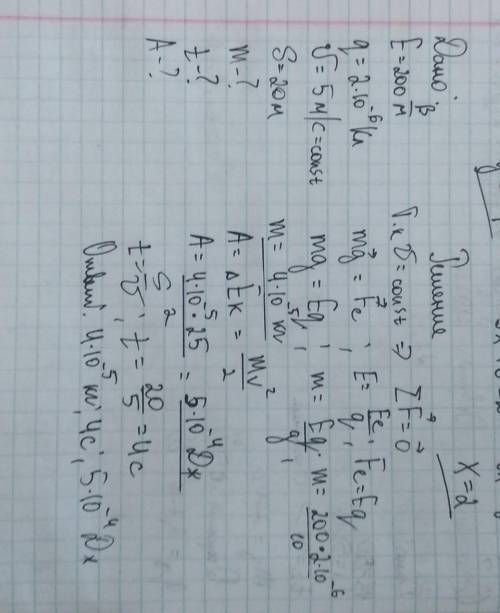 X=2
Дано:
E=200 В/м
q=2·10⁻⁶ Кл
V=5 м/с=const
S=20м
m-?
t-?
A-?
Решение
Т.к V=const => ΣF⃗=0⃗
mg⃗ = F⃗e, E=Fe/q, Fe=Eq
mg=Eq, m=Eq/g, m=200·2·10⁻⁶/10
m=4·10⁻⁵ кг
A=ΔEк=mv²/2
A=4·10⁻⁵·25/2=5·10⁻⁴Дж
t=S/V, t=20/5=4c
Ответ: 4·10⁻⁵ кг, 4с, 5·10⁻⁴ Дж